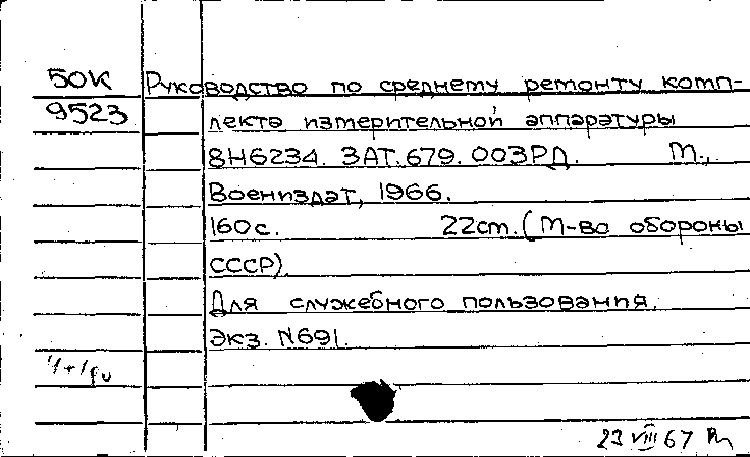 50К Руководство по среднему ремонту комп-
9523 лекта измерительной аппаратуры
8Н6234. ЗАТ.679.003РД. М.,
Воениздат, 1966.
160с. 22см. (М-во обороны
СССР)
Для служебного пользования.
Экз. N691.
23 VIII 67